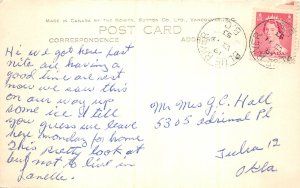 MADE IN CANADA BY THE GOWEN, SUTTON CO. LTD., VANCOUVER,
POST CARD
CORRESPONDENCE
ADD
Hi we got here last
nite all having a
good time are rest
now we saw this
on our way up
some ice I tell
you guess we leave
here monday for home
This pretty look at
but not to live in
Lanelle.
Mr Mrs G.C. Hall
5305 Pl
Tulsa 12
Okla